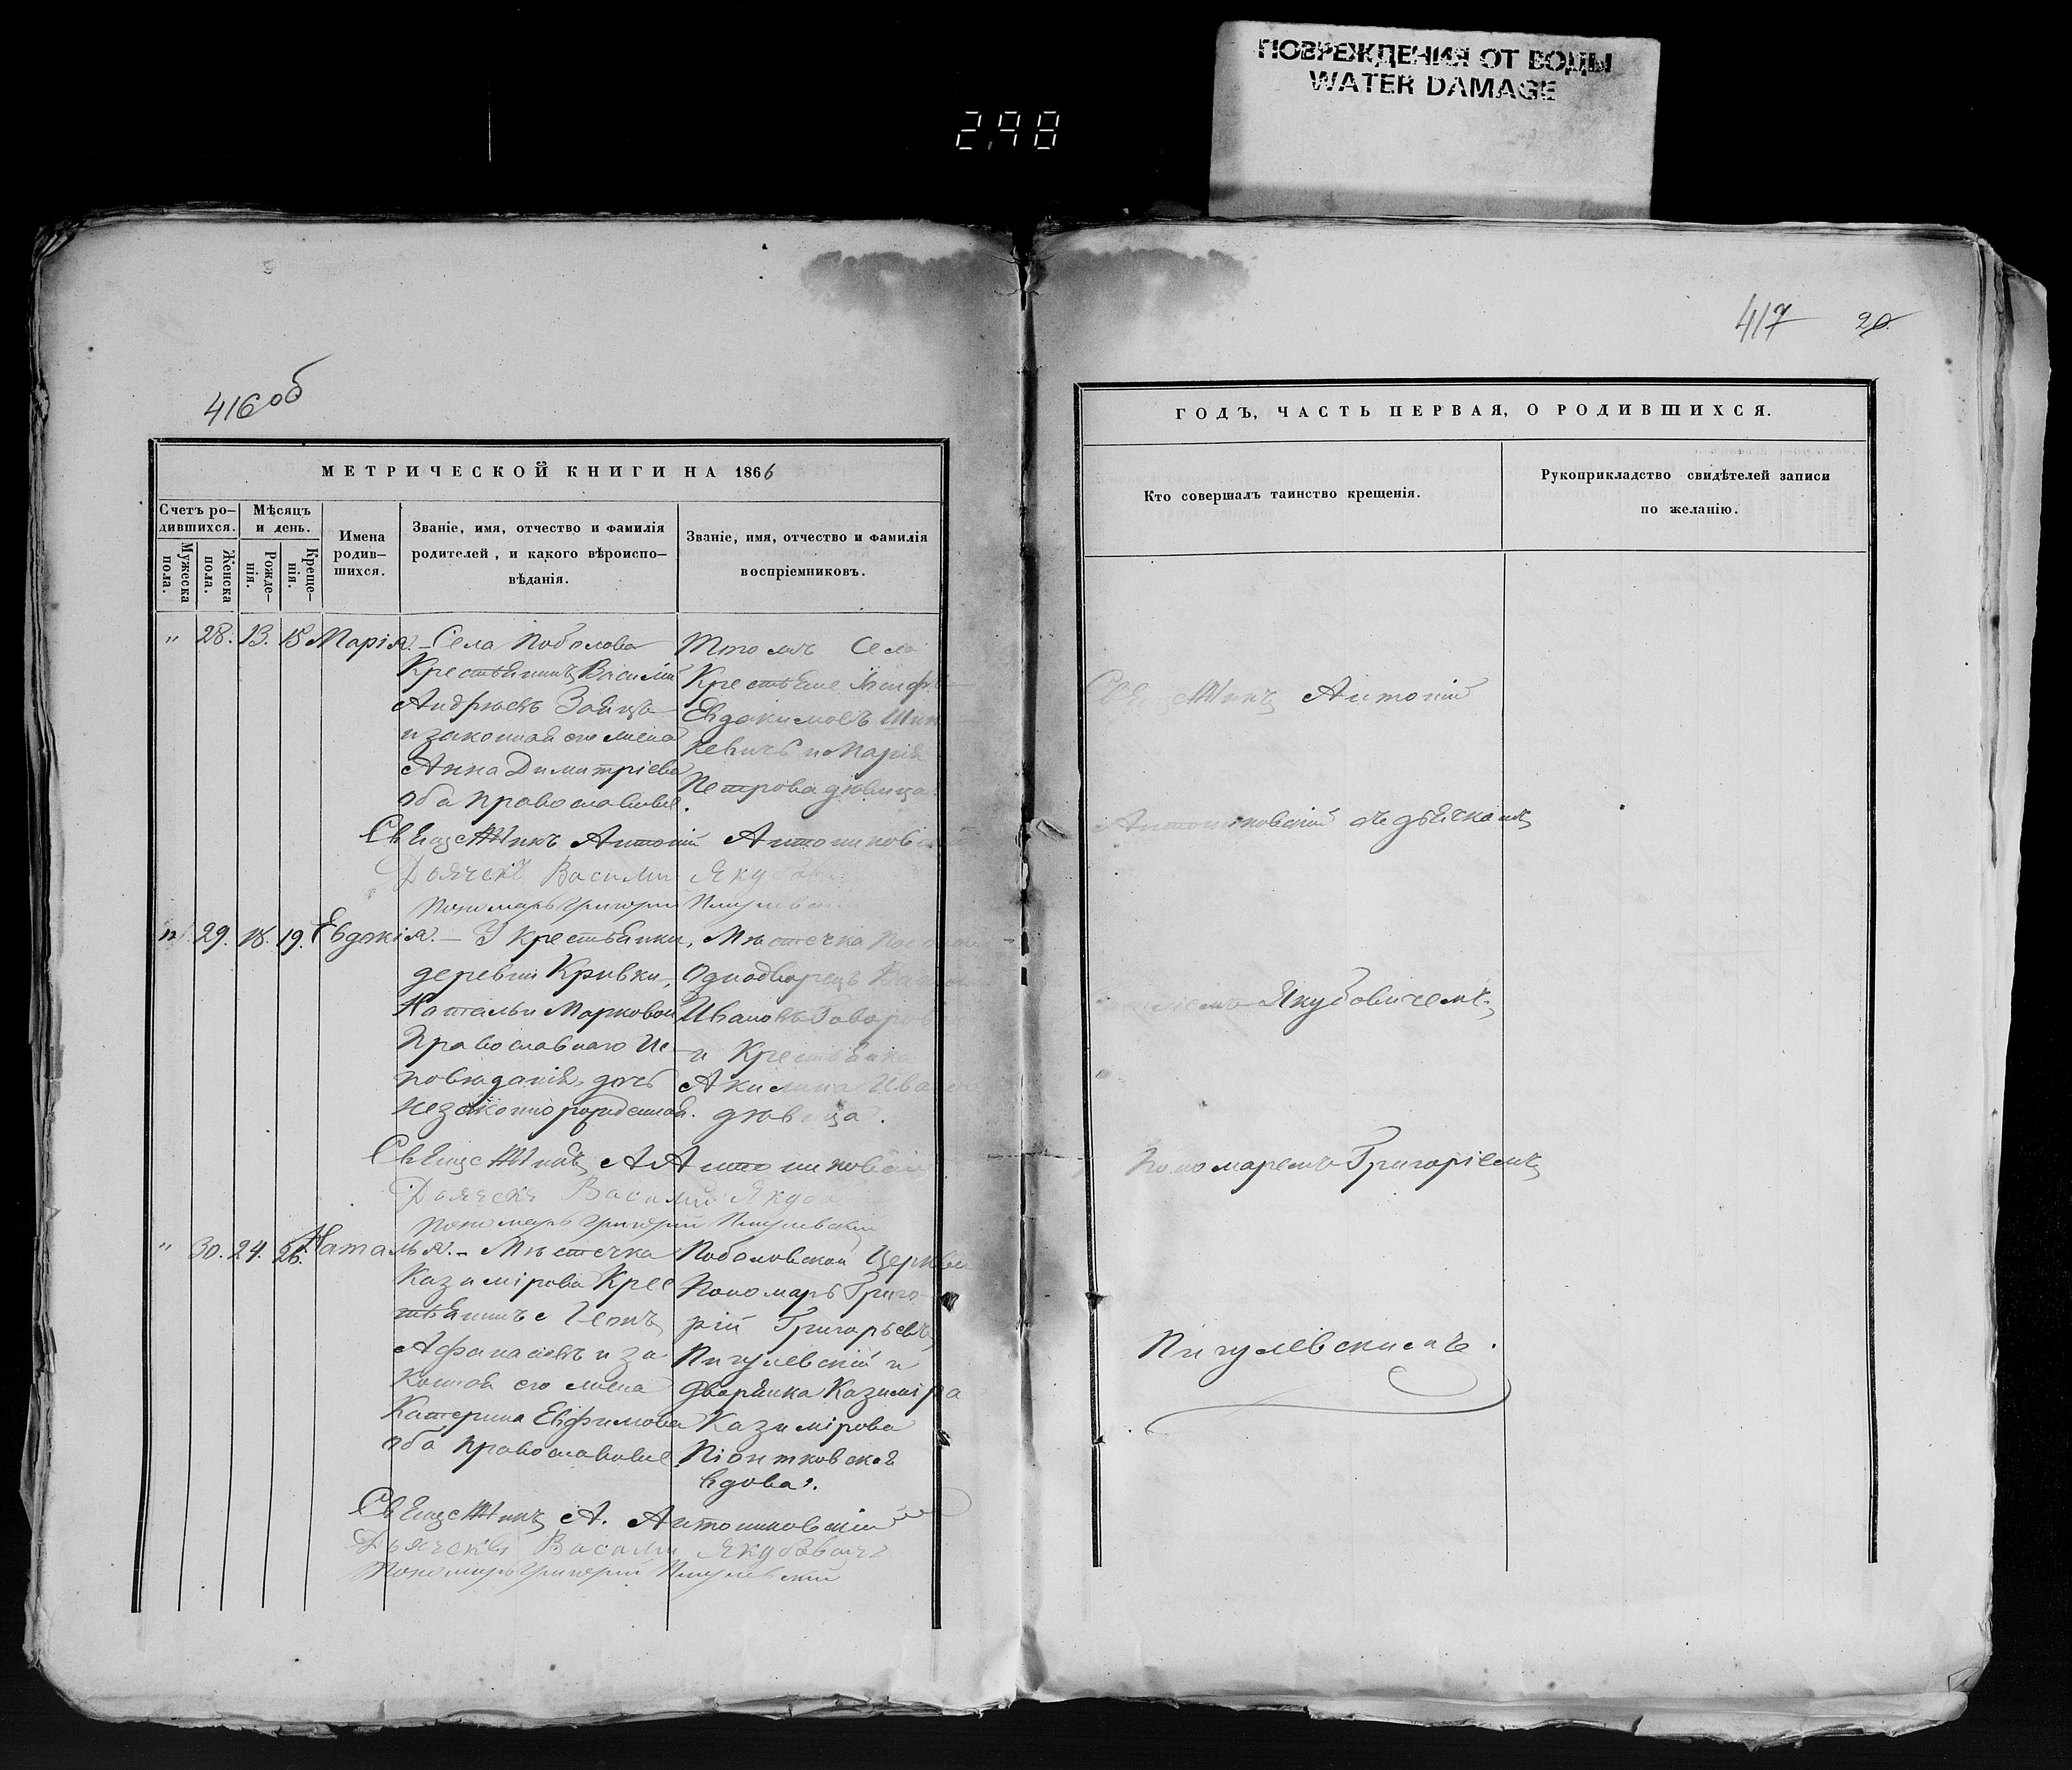 ПОВРЕЖДЕНИЯ ОТ ВОДЫ
WATER DAMAGE
298
416об
МЕТРИЧЕСКОЙ КНИГИ НА 1866
Счетъ ро-
дившихся.
Мужеска
пола.
Женска
пола.
Мѣсяцъ
и день.
Рожде-
нія.
Креще-
нія.
Имена
родив-
шихся.
Званіе, имя, отчество и фамилія
родителей, и какого вѣроиспо-
вѣданія.
Званіе, имя, отчество и фамилія
воспріемниковъ.
" 28. 13. 15 Марія. – Села Поболова
Крестьянинъ Василій
Андреевъ Заяцъ
и законная его жена
Анна Димитріева
оба православные.
Того жъ Села
Крестьяне
Евдокимовъ Шин
кевичъ и Марія
Петрова дѣвица.
Священникъ Антоній Антониковскій
Дьячекъ Василій Якубович
Пономарь Григорій Пигулевскій
" 29. 18. 19. Евдокія. – У крестьянки,
деревни Кривки,
Натальи Марковой
Православнаго Ис-
повѣданія, дочь
незаконнорожденная.
Мѣстечка
Однодворецъ
Ивановъ Говоров
и Крестьянка
Акилина Иванова
дѣвица.
Священникъ А Антониковскій
Дьячекъ Василий Якубович
Пономарь Григорій Пигулевскій
" 30. 24. 26. Наталья. – Мѣстечка
Казимірова Крес
тьянинъ
Афанасіевъ и за
конная его жена
Катерина Евфимова
оба православные
Поболовской Церкви
Пономарь Григо
рій Григорьевъ
Пигулевскій и
дворянка Казиміра
Казимірова
Піонтковская
вдова.
Священникъ А. Антониковскій
Дьячекъ Василий Якубович
Пономарь Григорій Пигулевскій
417 20
ГОДЪ, ЧАСТЬ ПЕРВАЯ, О РОДИВШИХСЯ.
Кто совершалъ таинство крещенія.
Рукоприкладство свидѣтелей записи
по желанію.
Священникъ Антоній
Антониковскій съ дьячкомъ
Василіемъ Якубовичемъ,
Пономаремъ Григоріемъ
Пигулевскимъ.